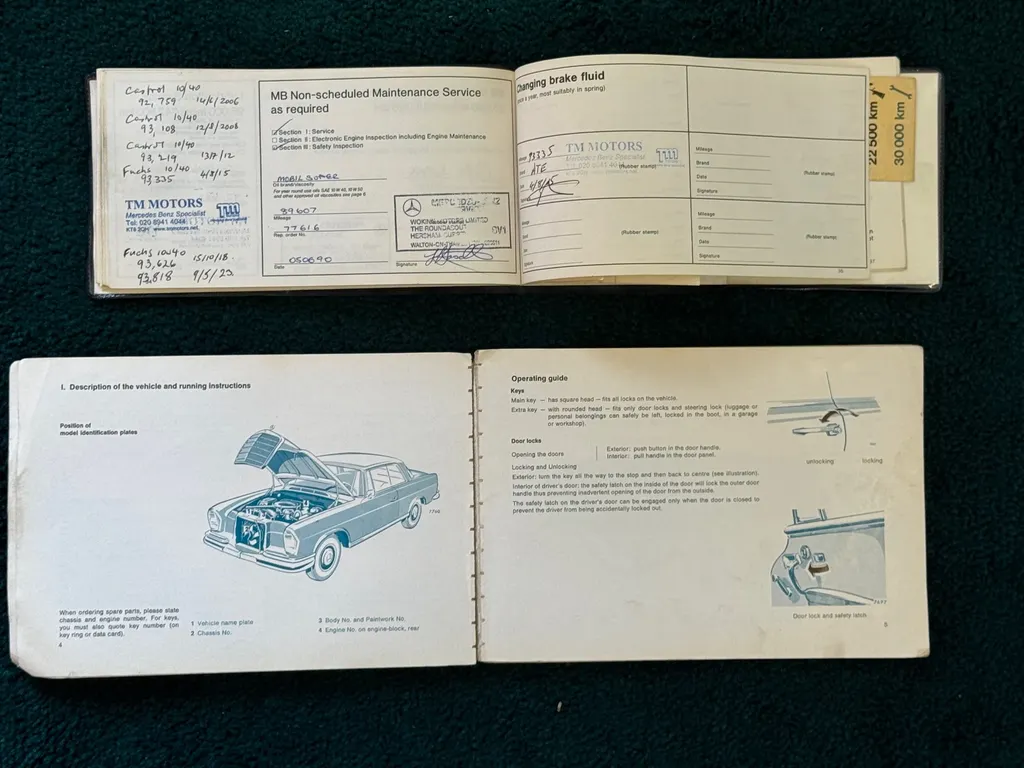 Castrol 10/40
92,759 14/6/2006
Castrol 10/40
93,108 12/8/2006
Castrol 10/40
93,219
Fuchs 10/40
93335 4/8/15
TM MOTORS
Mercedes Benz Specialist
Tel: 020 8941 4044
KT8 2QH www.tmmotors.net
Fuchs 10w40
93,626 15/10/18
93,818 9/5/23
MB Non-scheduled Maintenance Service
as required
Section I: Service
Section II: Electronic Engine Inspection including Engine Maintenance
Section III: Safety Inspection
MOBIL
Oil brand/viscosity
For year round use oils SAE
and other approved oil viscosities see page 6
89607
Mileage
77616
Rep. order No.
050690
Date
WOKING MOTORS LIMITED
THE ROUNDABOUT
WALTON-ON-
Signature
Changing brake fluid
(once a year, most suitably in spring)
93335
ATE
4/8/15
TM MOTORS
Mercedes Benz Specialist
(Rubber stamp)
Mileage
Brand
Date
Signature
(Rubber stamp)
(Rubber stamp)
Mileage
Brand
Date
Signature
(Rubber stamp)
22 500 km
30 000 km
I. Description of the vehicle and running instructions
Position of
model identification plates
When ordering spare parts, please state
chassis and engine number. For keys,
you must also quote key number (on
key ring or data card).
1 Vehicle name plate
2 Chassis No.
3 Body No. and Paintwork No.
4 Engine No. on engine-block, rear
4
Operating guide
Keys
Main key — has square head — fits all locks on the vehicle.
Extra key — with rounded head — fits only door locks and steering lock (luggage or
personal belongings can safely be left, locked in the boot, in a garage
or workshop).
Door locks
Opening the doors
Exterior: push button in the door handle.
Interior: pull handle in the door panel.
Locking and Unlocking
Exterior: turn the key all the way to the stop and then back to centre (see illustration).
Interior of driver's door: the safety latch on the inside of the door will lock the outer door
handle thus preventing inadvertent opening of the door from the outside.
The safety latch on the driver's door can be engaged only when the door is closed to
prevent the driver from being accidentally locked out.
unlocking
locking
Door lock and safety latch
5